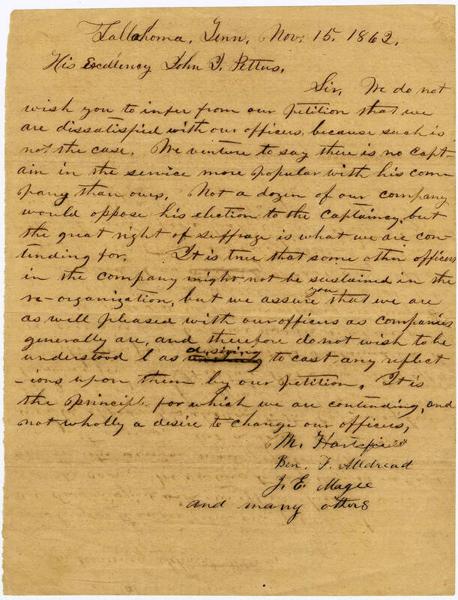 Tallahoma, Tenn, Nov. 15. 1862.
His Excellency John J. Pettus,
Sir, We do not
wish you to infer from our petition that we
are dissatisfied with our officers, because such is
not the case. We venture to say there is no Capt-
ain in the service more popular with his com-
pany than ours. Not a dozen of our company
would oppose his election to the Captaincy, but
the great right of suffrage is what we are con-
tending for. It is true that some other officers
in the company might not be sustained in the
re-organization, but we assure you that we are
as well pleased with our officers as companies
generally are, and therefore do not wish to be
understood as desiring to cast any reflect-
ions upon them by our petition. It is
the principle for which we are contending, and
not wholly a desire to change our officers,
M.
Ben. F.
J. E. Magee
and many others